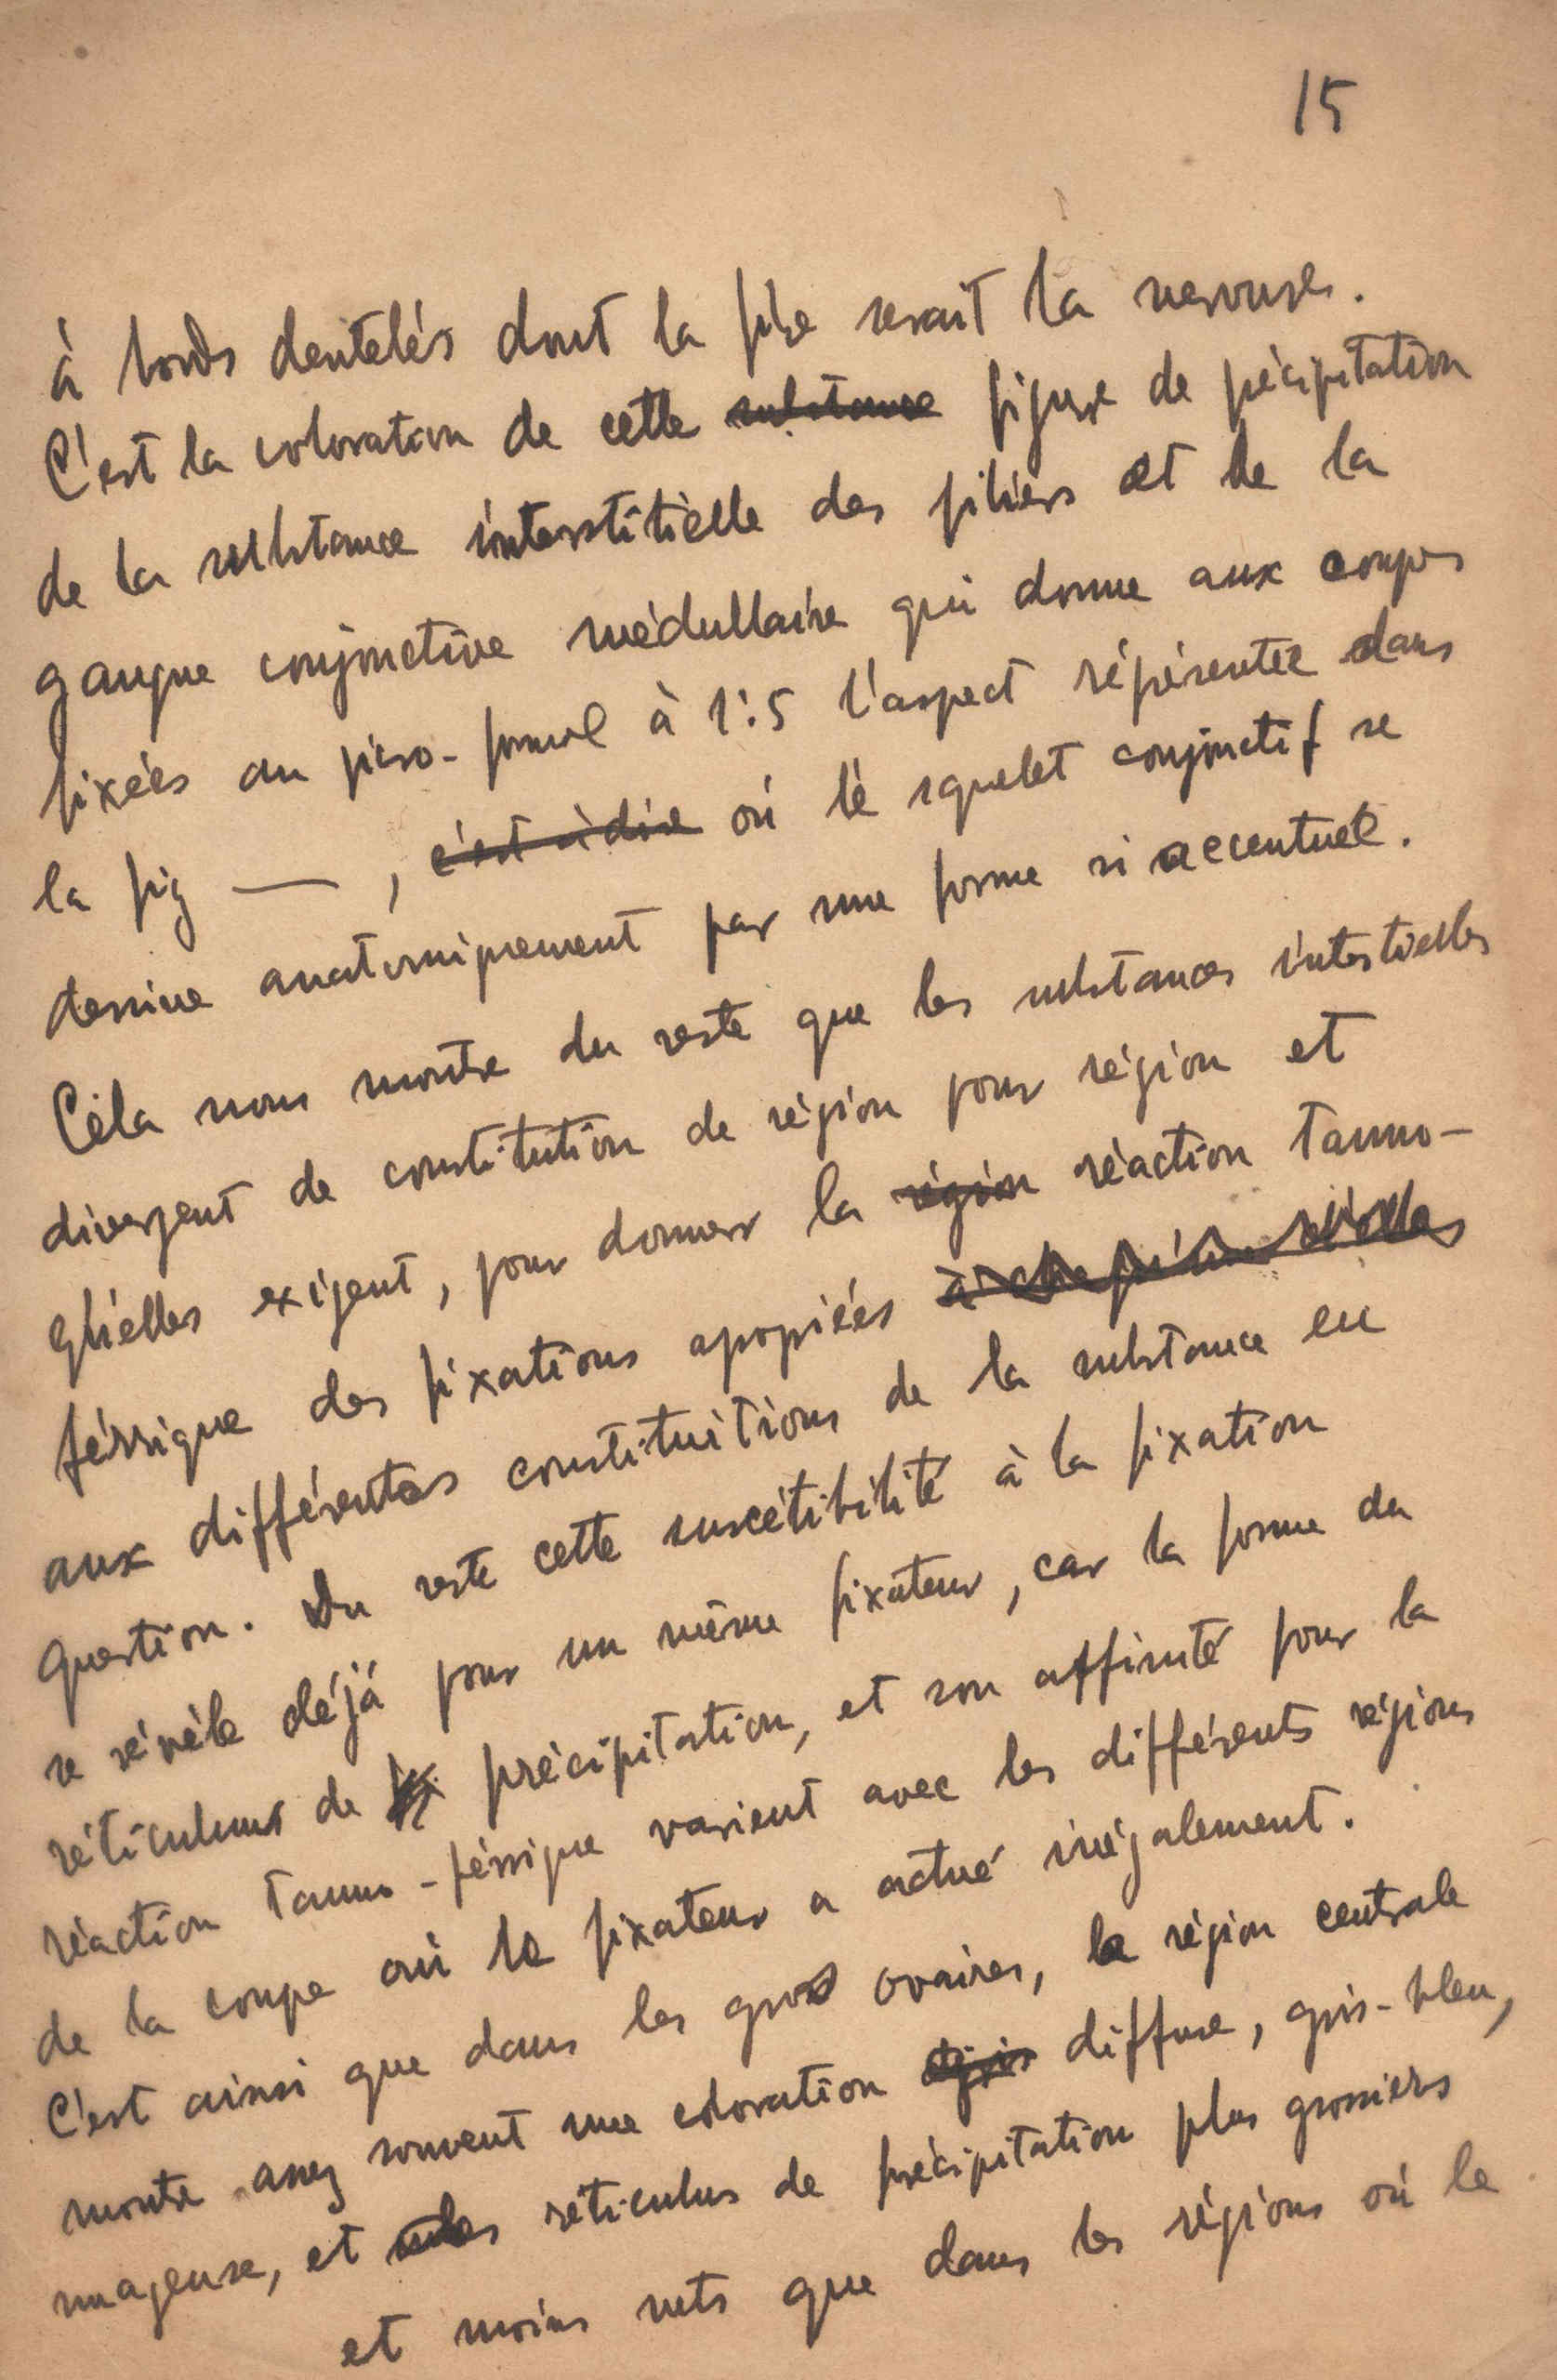 15
à bords dentelés dont la fibre serait la nervure.
C'est la coloration de cette substance figure de précipitation
de la substance interstitielle des piliers et de la
gangue conjonctive médullaire qui donne aux coupes
fixées au picro-formol à 1:5 l'aspect réprésentée dans
la fig — , c'est à dire où le squelet conjonctif se
dessine anatomiquement par une forme si accentuée.
Cela nous montre du reste que les substances interstielles
divergent de constitution de région pour région et
qu'elles exigent, pour donner la région réaction tanno-
férrique des fixations apopriées
aux différentes constituitions de la substance en
question. Du reste cette suscétibilité à la fixation
se révèle déjà pour un même fixateur, car la forme du
réticulums de précipitation, et son affinité pour la
réaction tanno-férrique varient avec les différents régions
de la coupe où le fixateur a actué inégalement.
C'est ainsi que dans les gros ovaires, la région centrale
montre assez souvent une coloration diffuse, gris-bleu,
nuageuse, et réticulus de précipitation plus grossiers
et moins nets que dans les régions où le